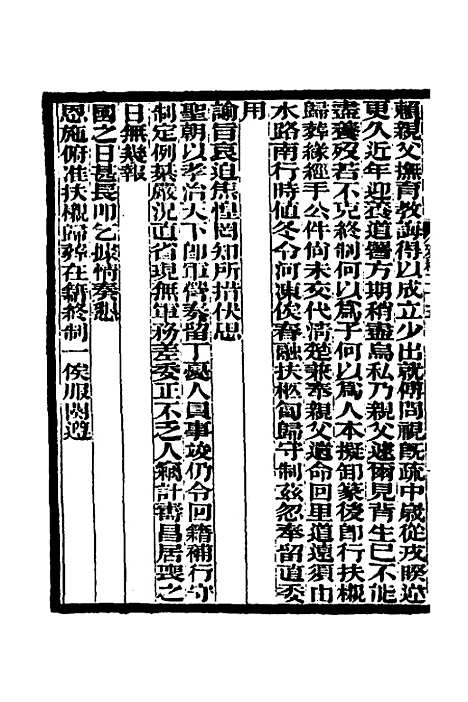 賴親父撫育教誨得以成立少出就傅問視旣疏中歲從戎睽違
更久近年迎養道署方期稍盡烏私乃親父遽爾見背生已不能
盡養歿若不克終制何以爲子何以爲人本擬卸篆後卽行扶櫬
歸葬緣經手公件尚未交代淸楚兼奉親父遺命回里道遠須由
水路南行時値冬令河凍俟春融扶柩匍歸守制茲忽奉留直委
用
諭旨哀迫焦惶罔知所措伏思
聖朝以孝治天下卽軍營奏留丁憂人員事竣仍令回籍補行守
制定例綦嚴況直省現無軍務差委正不乏人竊計壽昌居喪之
日無幾報
國之日甚長叩乞據情奏懇
恩施俯准扶櫬歸葬在籍終制一俟服闋遵